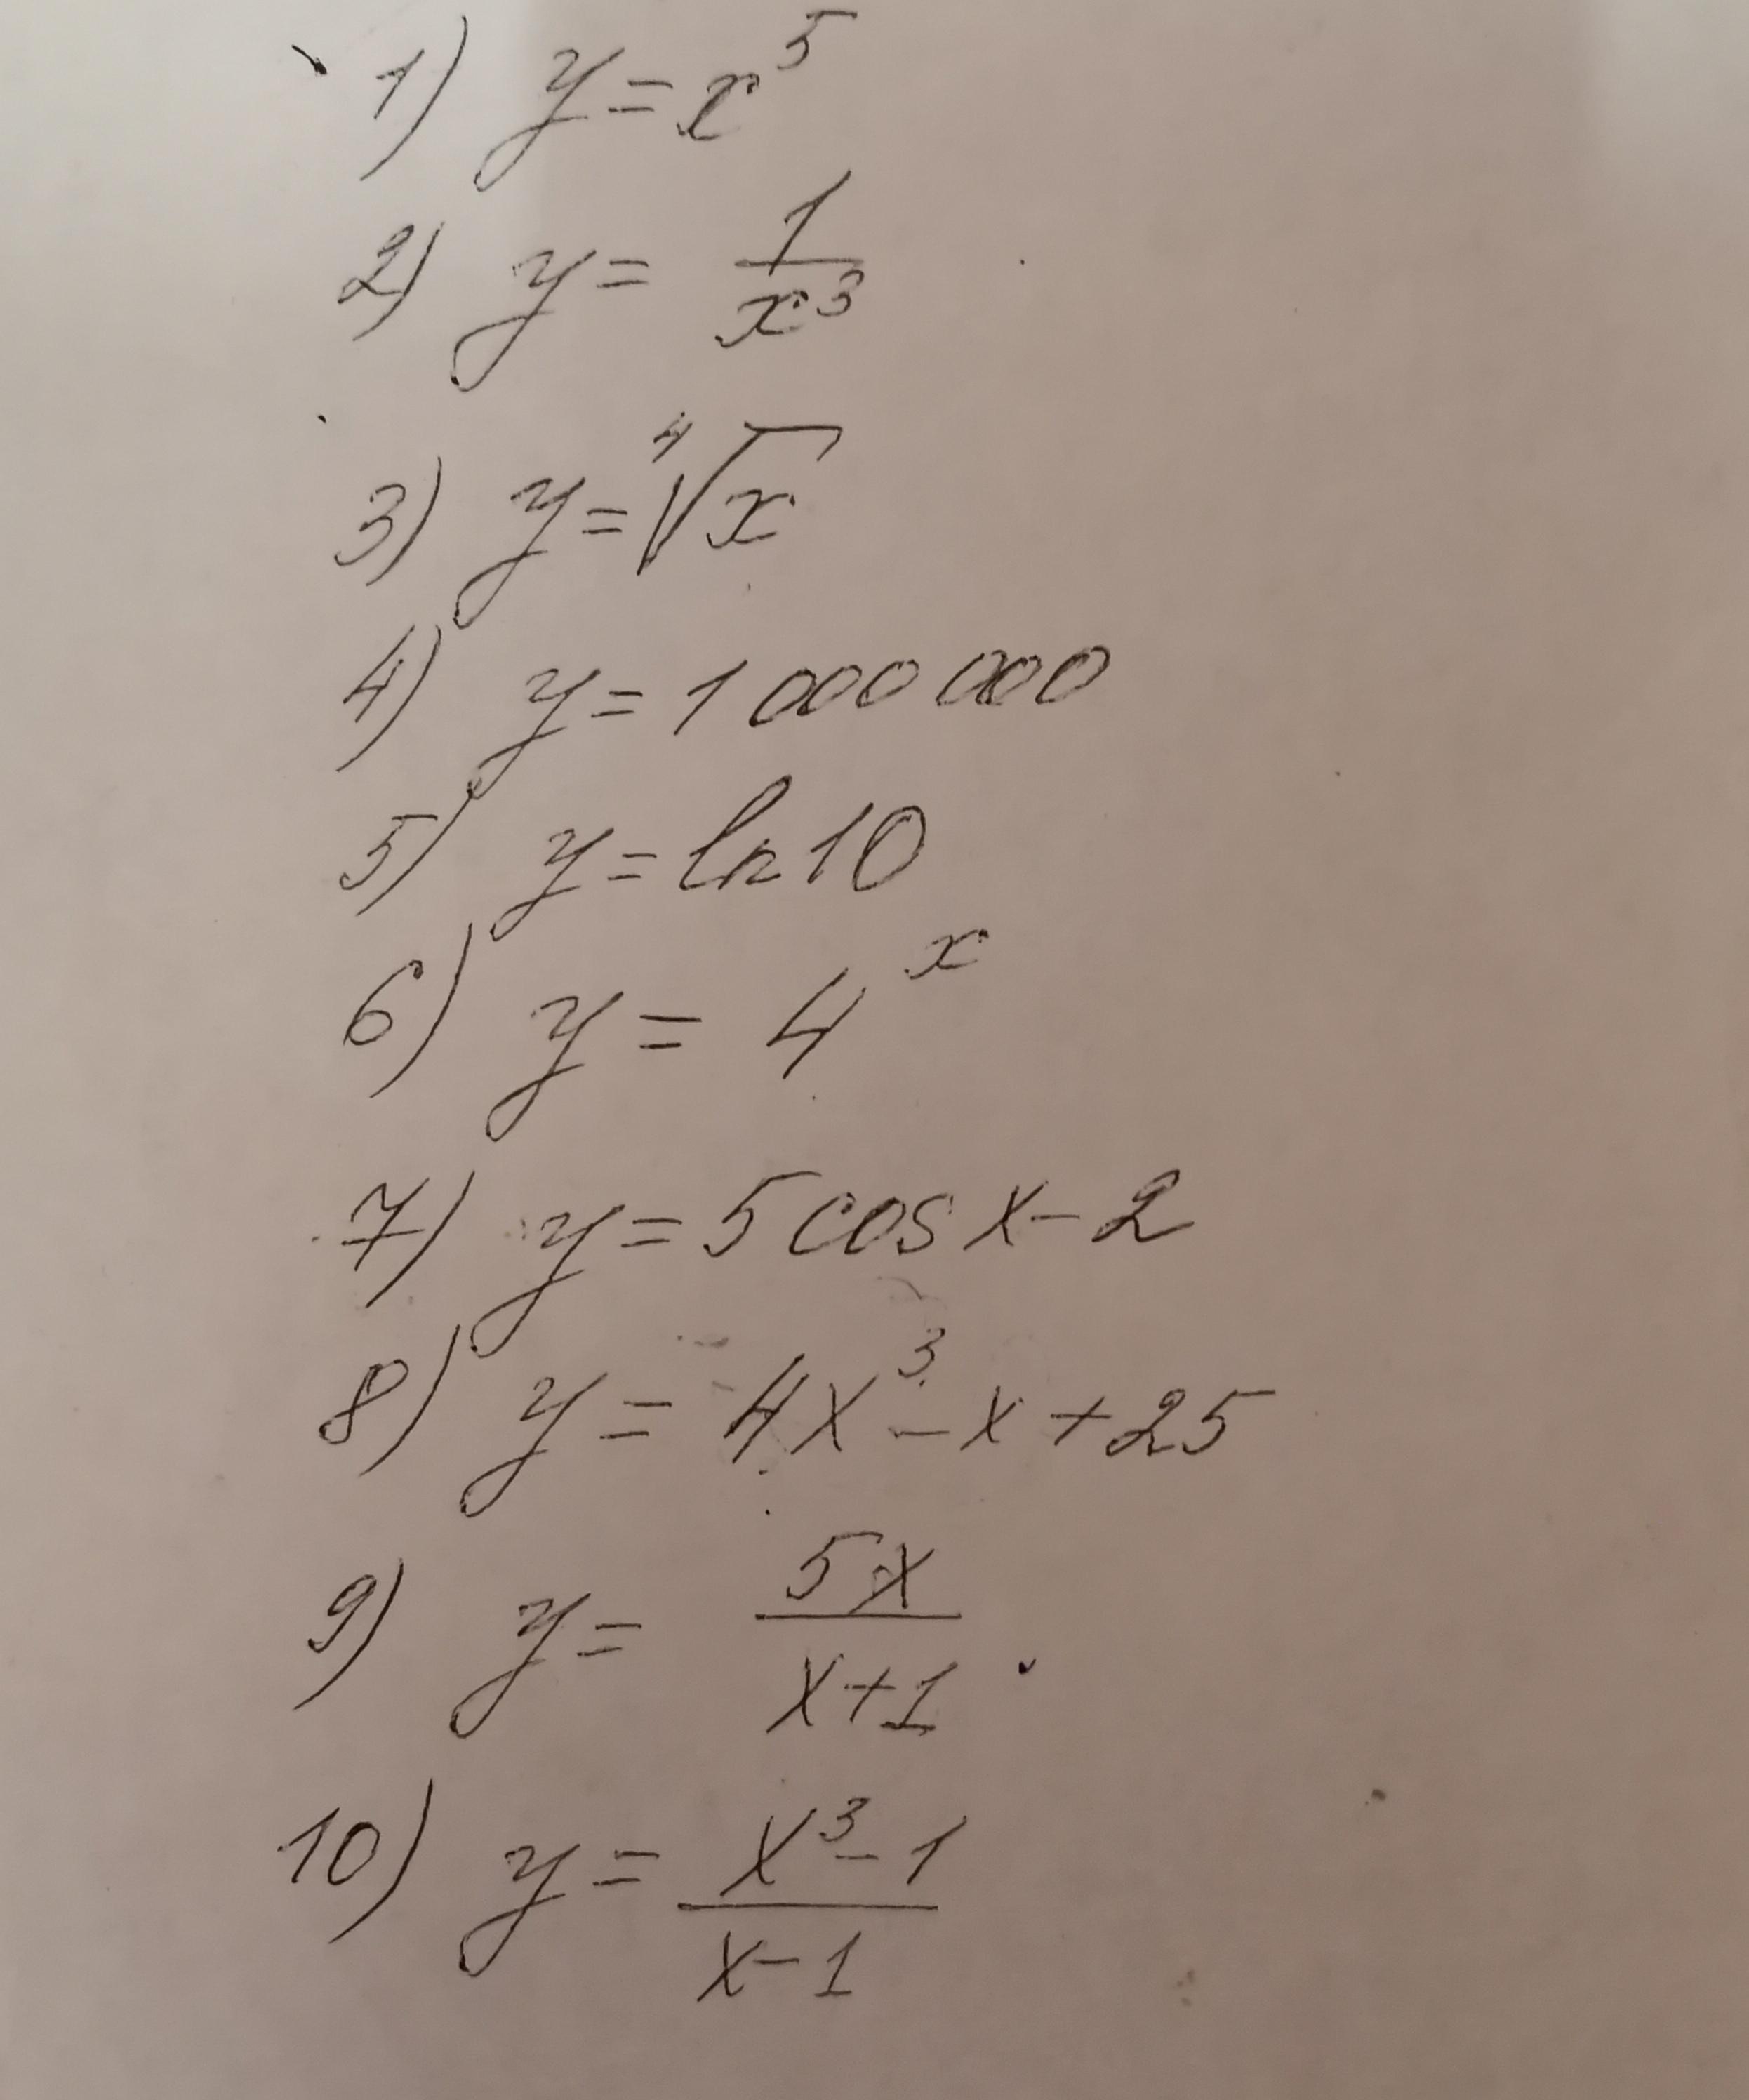 1) y = x⁵
2) y = 1/x³
3) y = ⁴√x
4) y = 1 000 000
5) y = ln 10
6) y = 4ˣ
7) y = 5 cos x - 2
8) y = 4x³ - x + 25
9) y = 5x/(x+1) .
10) y = (x³-1)/(x-1)